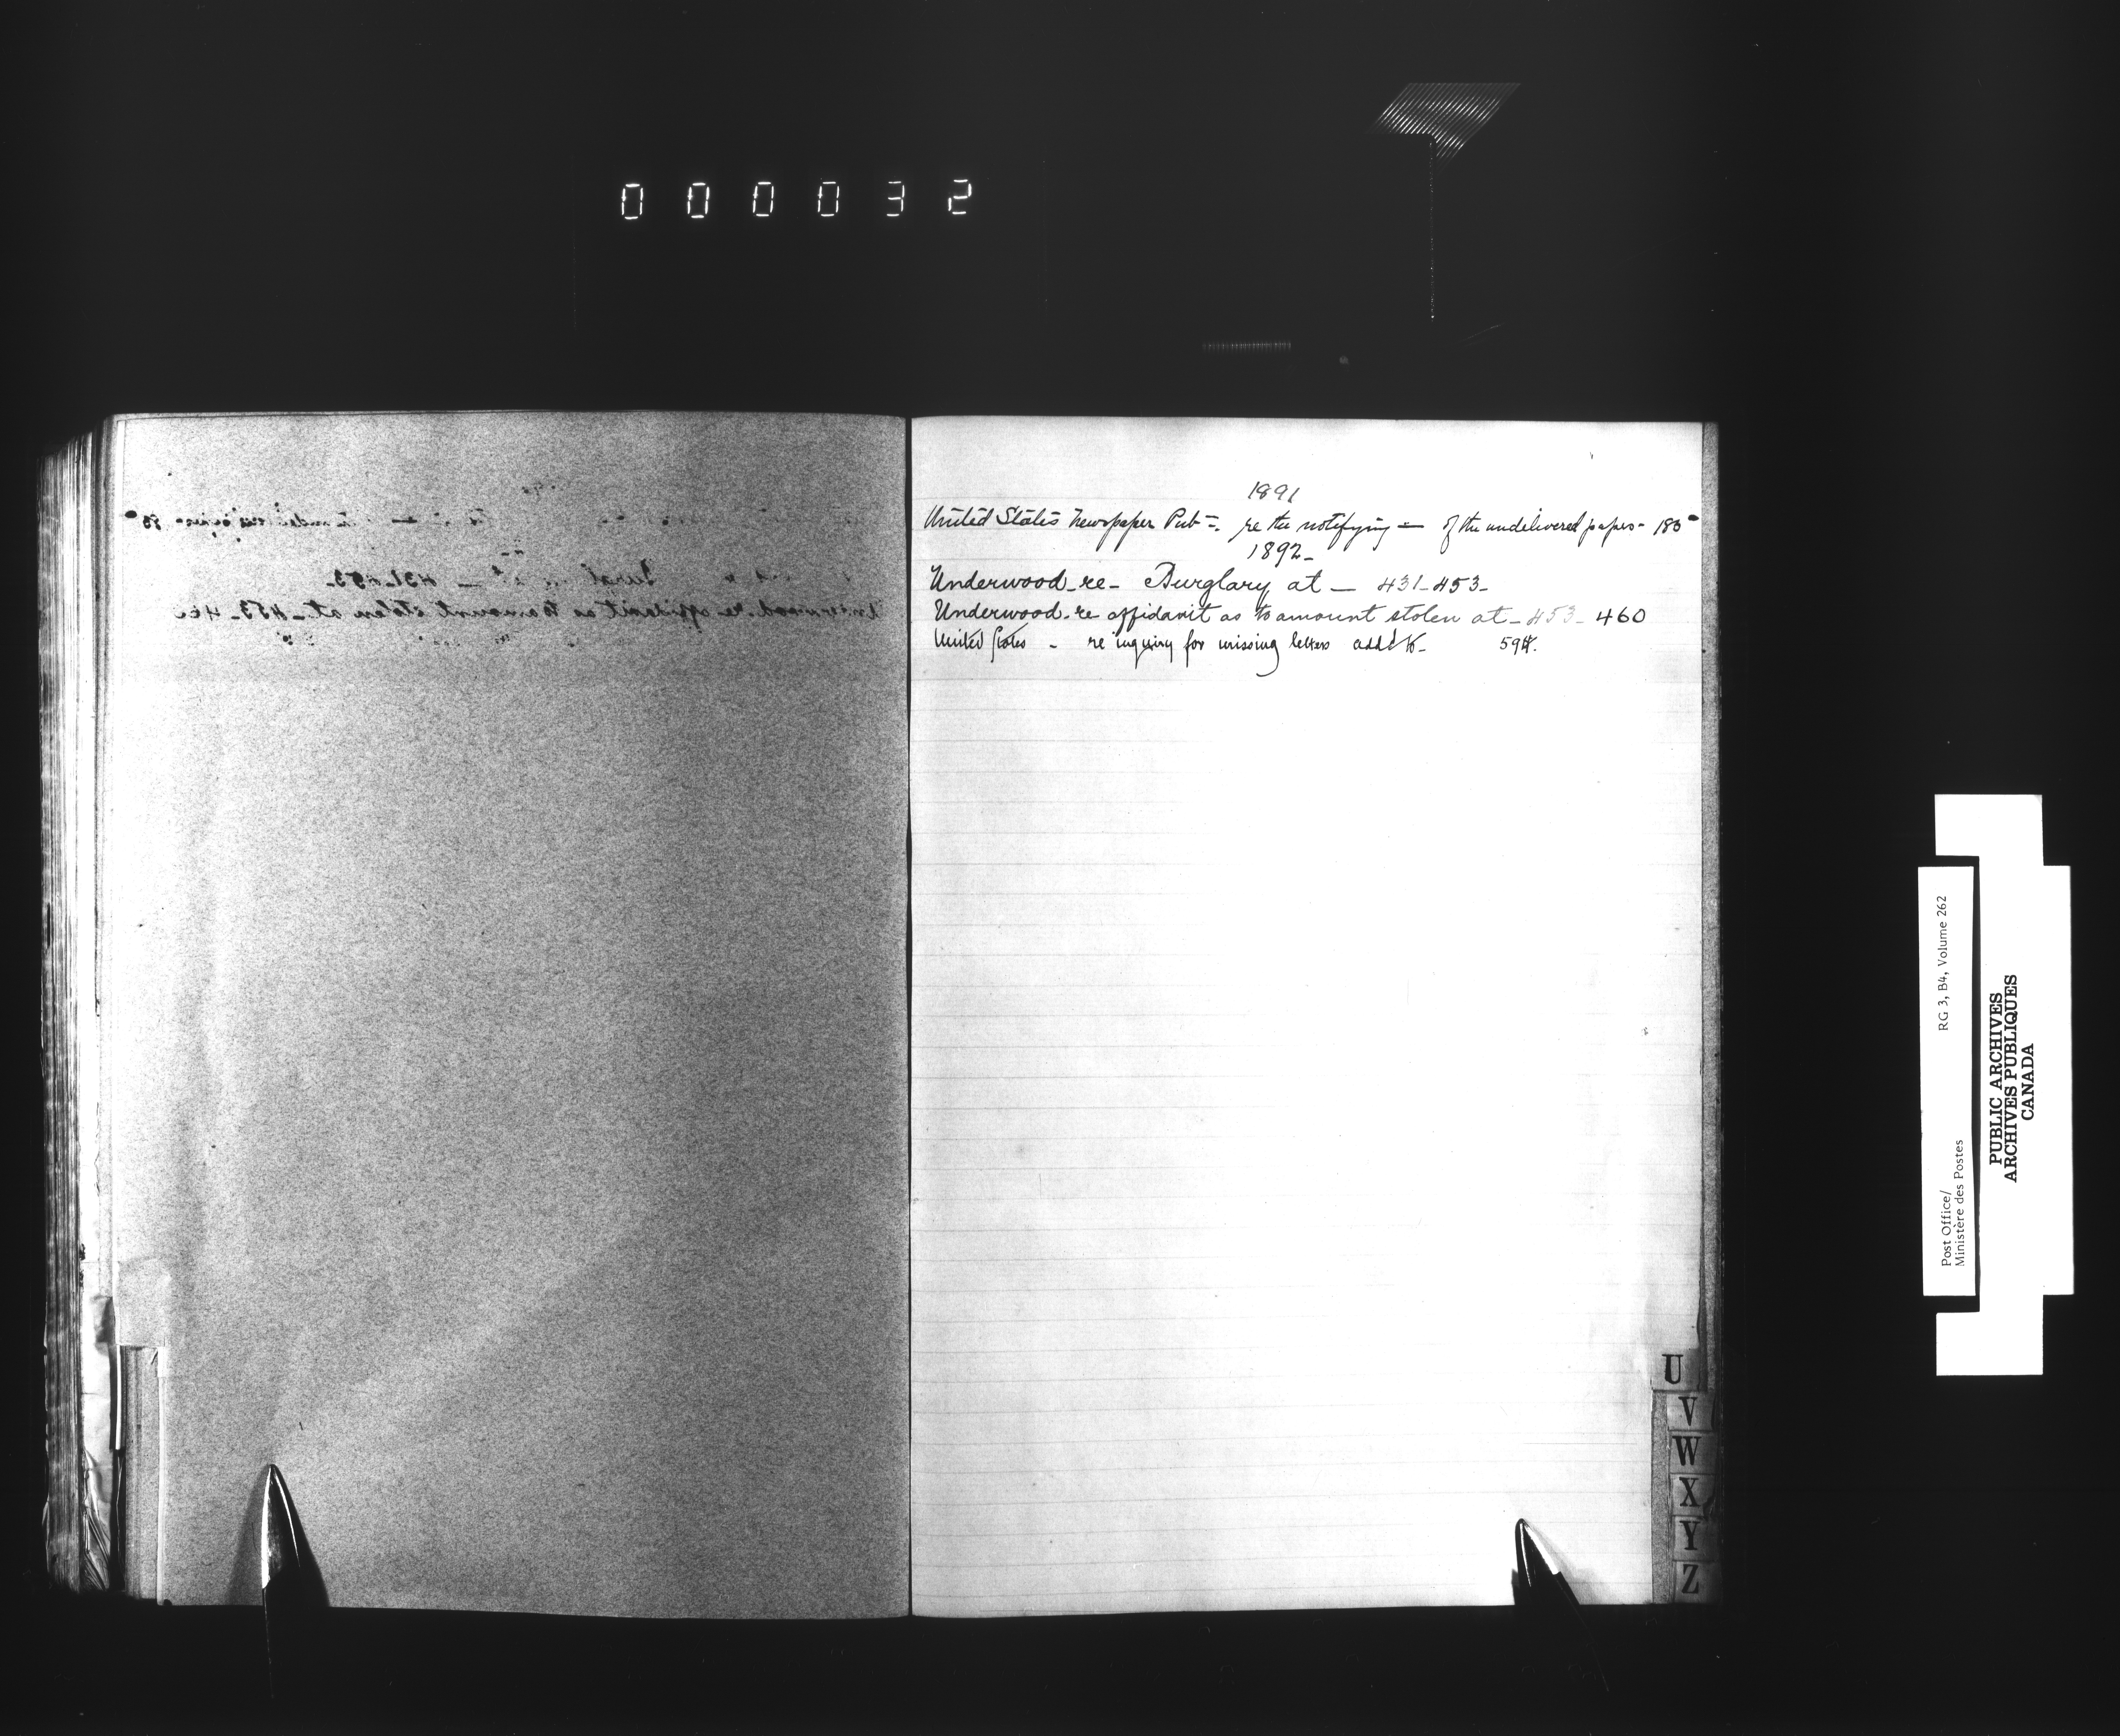 000032
1891
United States Newspaper Pub=. re the notifying = of the undelivered papers - 180
1892-
Underwood-re- Burglary at - 431-453-
Underwood-re affidavit as to amount stolen at - 453- 460
United States - re inquiry for missing letters add'd to- 594.
U
V
W
X
Y
Z
Post Office/
Ministère des Postes
RG 3, B4, Volume 262
PUBLIC ARCHIVES
ARCHIVES PUBLIQUES
CANADA